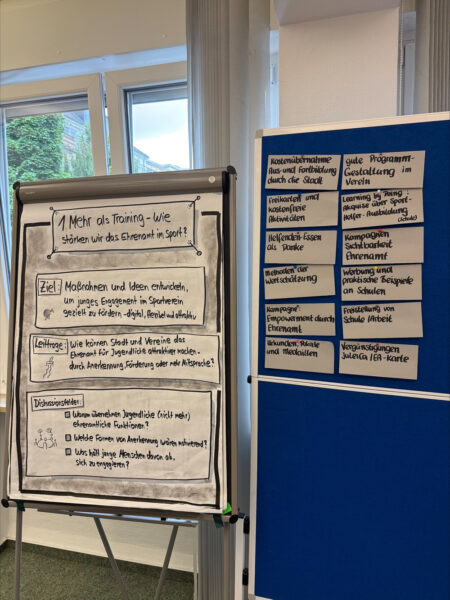 1 Mehr als Training - Wie
stärken wir das Ehrenamt im Sport?
Ziel: Maßnahmen und Ideen entwickeln,
um junges Engagement im Sportverein
gezielt zu fördern - digital, flexibel und attraktiv
Leitfrage: Wie können Stadt und Vereine das
Ehrenamt für Jugendliche attraktiver machen -
durch Anerkennung, Förderung oder mehr Mitsprache?
Diskussionsfelder:
Warum übernehmen Jugendliche (nicht mehr)
ehrenamtliche Funktionen?
Welche Formen von Anerkennung wären motivierend?
Was hält junge Menschen davon ab,
sich zu engagieren?
Kostenübernahme
Aus- und Fortbildung
durch die Stadt
Freikarten und
kostenfreie
Aktivitäten
Helfenden-Essen
als Danke
Methoden der
Wertschätzung
Kampagne:
Empowerment durch
Ehrenamt
Urkunden, Pokale
und Medaillen
gute Programm-
Gestaltung im
Verein
Learning by Doing:
Akquise über Sport-
Helfer-Ausbildung
(Schule)
Kampagnen
Sichtbarkeit
Ehrenamt
Werbung und
praktische Beispiele
an Schulen
Freistellung von
Schule / Arbeit
Vergünstigungen
JuLeiCa / EA-Karte